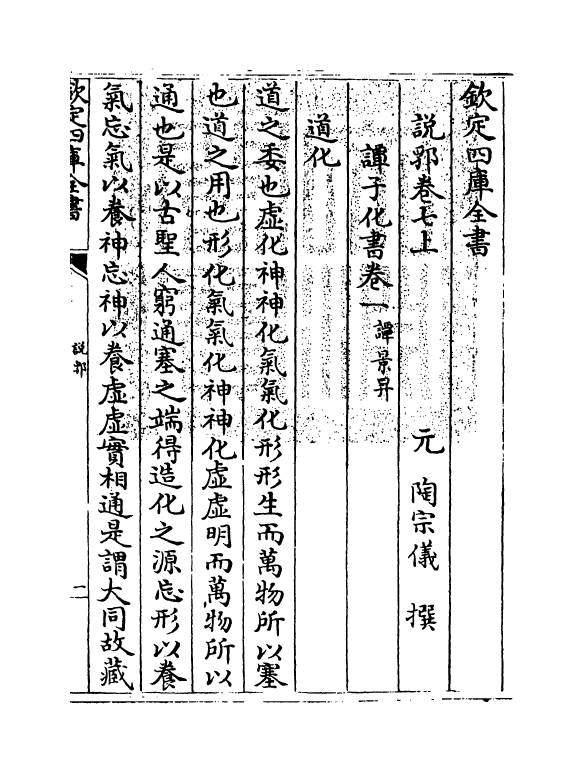 欽定四庫全書
說郛卷七上　元　陶宗儀　撰
譚子化書卷一　譚景昇
道化
道之委也虛化神神化氣氣化形形生而萬物所以塞
也道之用也形化氣氣化神神化虛虛明而萬物所以
通也是以古聖人窮通塞之端得造化之源忘形以養
氣忘氣以養神忘神以養虛虛實相通是謂大同故藏
欽定四庫全書
說郛
二